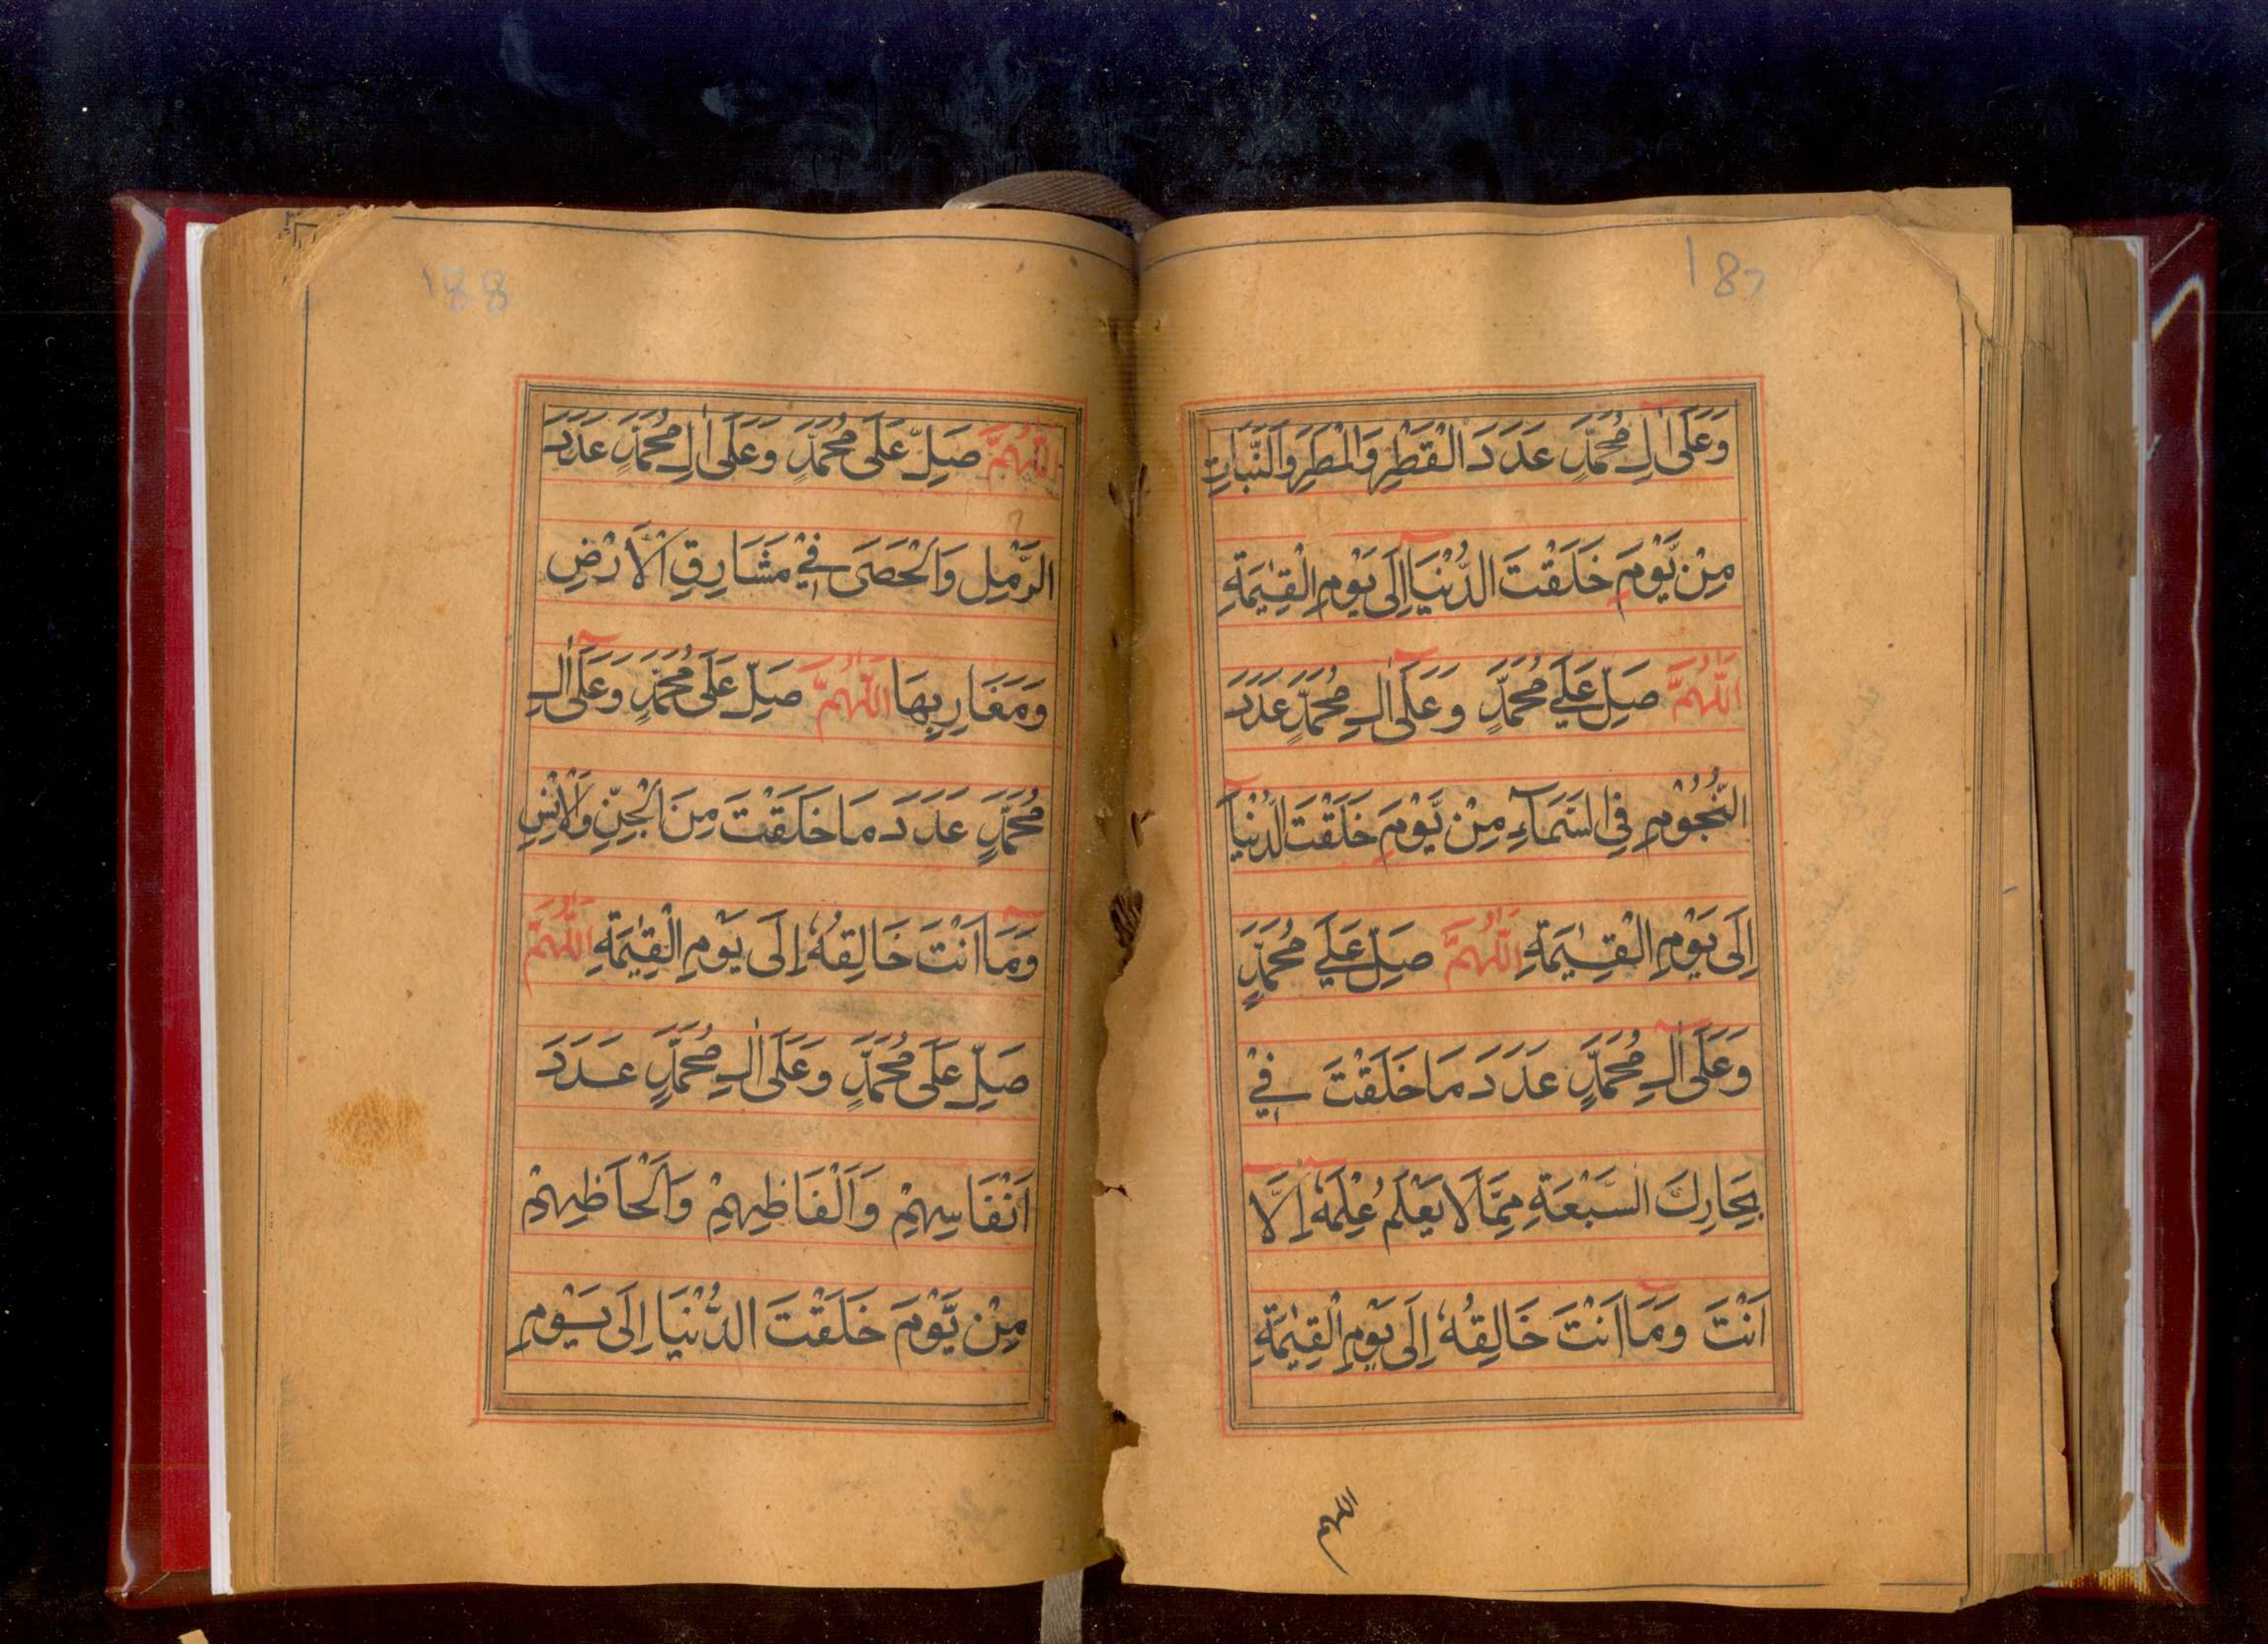 187
وَعَلَىٰ اٰلِ مُحَمَّدٍ عَدَدَ الْقَطْرِ وَالْمَطَرِ وَالنَّبَاتِ
مِنْ يَّوْمَ خَلَقْتَ الدُّنْيَا اِلَى يَوْمِ الْقِيٰمَةِ
اَللّٰهُمَّ صَلِّ عَلَى مُحَمَّدٍ وَعَلَىٰ اٰلِ مُحَمَّدٍ عَدَدَ
النُّجُوْمِ فِي السَّمَآءِ مِنْ يَّوْمَ خَلَقْتَ الدُّنْيَآ
اِلَى يَوْمِ الْقِيٰمَةِ اَللّٰهُمَّ صَلِّ عَلَى مُحَمَّدٍ
وَعَلَىٰ اٰلِ مُحَمَّدٍ عَدَدَ مَا خَلَقْتَ فِيْ
بِحَارِكَ السَّبْعَةِ مِمَّا لَا يَعْلَمُ عِلْمَهٗ اِلَّا
اَنْتَ وَمَآ اَنْتَ خَالِقُهٗ اِلَى يَوْمِ الْقِيٰمَةِ
اللهم
188
اَللّٰهُمَّ صَلِّ عَلَى مُحَمَّدٍ وَعَلَىٰ اٰلِ مُحَمَّدٍ عَدَدَ
الرَّمْلِ وَالْحَصَى فِيْ مَشَارِقِ الْاَرْضِ
وَمَغَارِبِهَا اَللّٰهُمَّ صَلِّ عَلَى مُحَمَّدٍ وَعَلَىٰ اٰلِ
مُحَمَّدٍ عَدَدَ مَا خَلَقْتَ مِنَ الْجِنِّ وَالْاِنْسِ
وَمَآ اَنْتَ خَالِقُهٗ اِلَى يَوْمِ الْقِيٰمَةِ اَللّٰهُمَّ
صَلِّ عَلَى مُحَمَّدٍ وَعَلَىٰ اٰلِ مُحَمَّدٍ عَدَدَ
اَنْفَاسِهِمْ وَاَلْفَاظِهِمْ وَاَلْحَاظِهِمْ
مِنْ يَّوْمَ خَلَقْتَ الدُّنْيَا اِلَى يَوْمِ